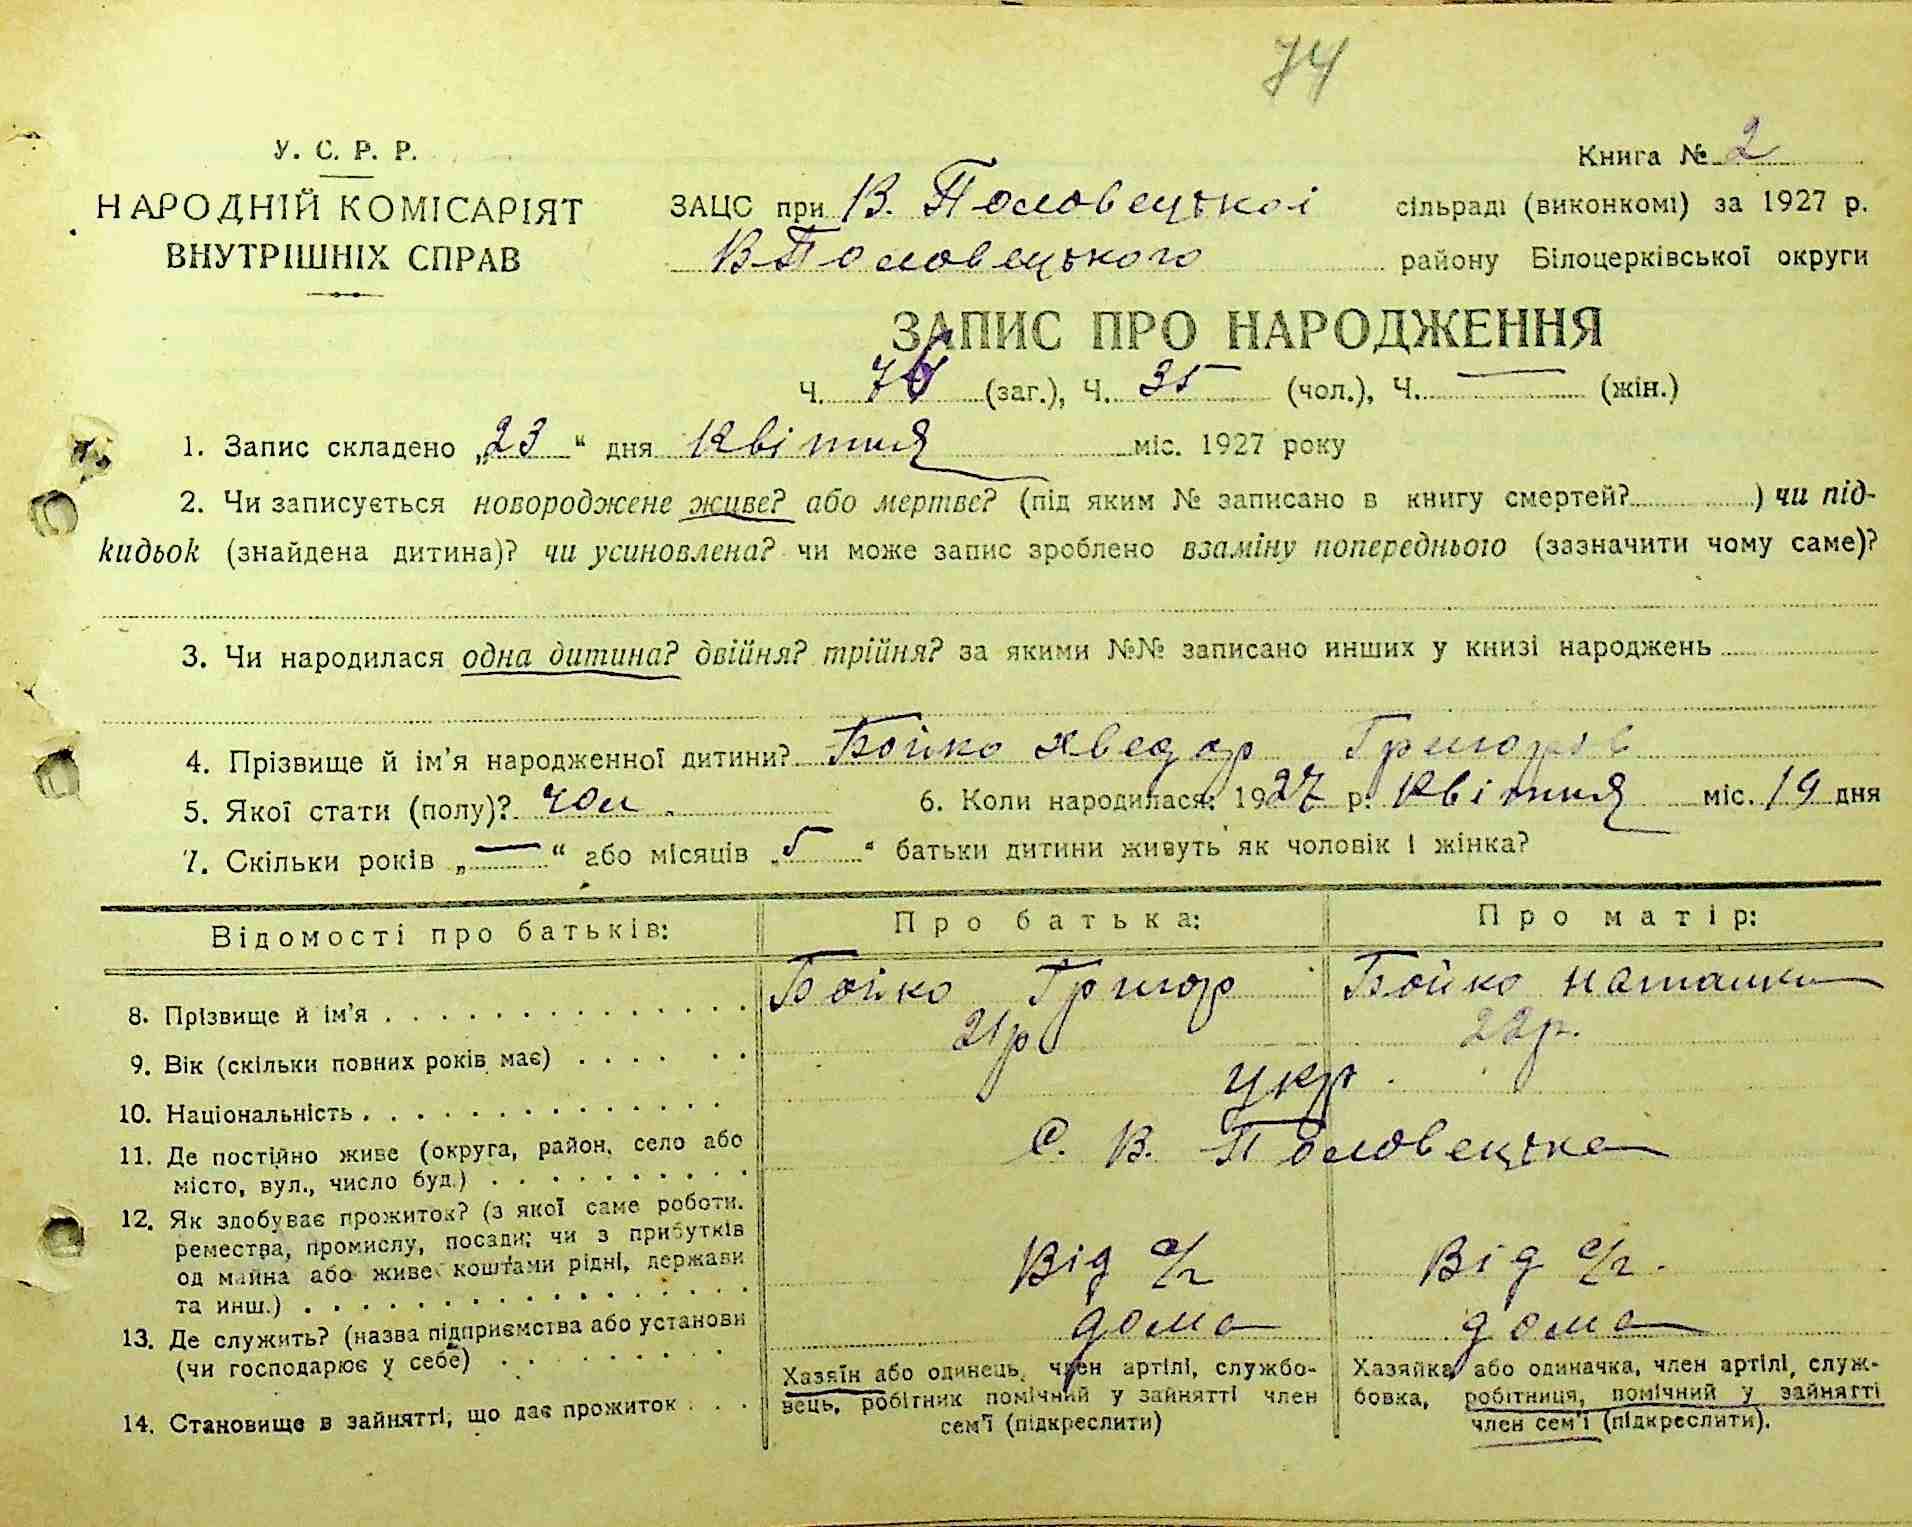 74
У. С. Р. Р.
Книга № 2
НАРОДНІЙ КОМІСАРІЯТ
ВНУТРІШНІХ СПРАВ
ЗАЦС при В. Половецькоі сільраді (виконкомі) за 1927 р.
В Половецького району Білоцерківської округи
ЗАПИС ПРО НАРОДЖЕННЯ
Ч. 76 (заг.), Ч. 35 (чол.), Ч. — (жін.)
1. Запис складено „23“ дня Квітня міс. 1927 року
2. Чи записується новороджене живе? або мертве? (під яким № записано в книгу смертей? ) чи під-
кидьок (знайдена дитина)? чи усиновлена? чи може запис зроблено взаміну попереднього (зазначити чому саме)?
3. Чи народилася одна дитина? двійня? трійня? за якими №№ записано инших у книзі народжень
4. Прізвище й ім'я народженної дитини? Бойко Хведор Григоров
5. Якої стати (полу)? чол. 6. Коли народилася: 1927 р. Квітня міс. 19 дня
7. Скільки років „—“ або місяців „5“ батьки дитини живуть як чоловік і жінка?
Відомості про батьків: Про батька: Про матір:
8. Прізвище й ім'я Бойко Григор Бойко Наташка
9. Вік (скільки повних років має) 21р 22р.
10. Національність укр.
11. Де постійно живе (округа, район, село або
місто, вул., число буд.) С. В. Половецька
12. Як здобуває прожиток? (з якої саме роботи,
ремества, промислу, посади; чи з прибутків
од майна або живе коштами рідні, держави
та инш.) Від с/г Від с/г.
13. Де служить? (назва підприємства або установи
(чи господарює у себе) дома дома
14. Становище в зайнятті, що дає прожиток
Хазяїн або одинець, член артілі, службо-
вець, робітник помічний у зайнятті член
сем'ї (підкреслити)
Хазяйка або одиначка, член артілі, служ-
бовка, робітниця, помічний у зайнятті
член сем'ї (підкреслити).